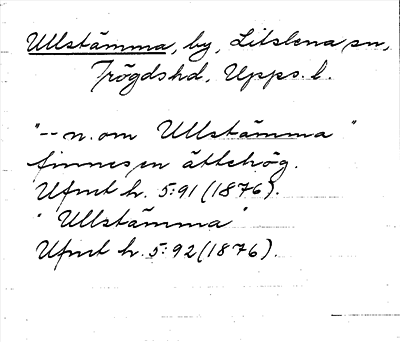 Ullstämma, by, Litslena sn,
Trögds hd, Upps. l.
"-- n. om Ullstämma"
finnes en ättehög.
Ufmt h. 5:91 (1876).
"Ullstämma"
Ufmt h. 5:92 (1876).